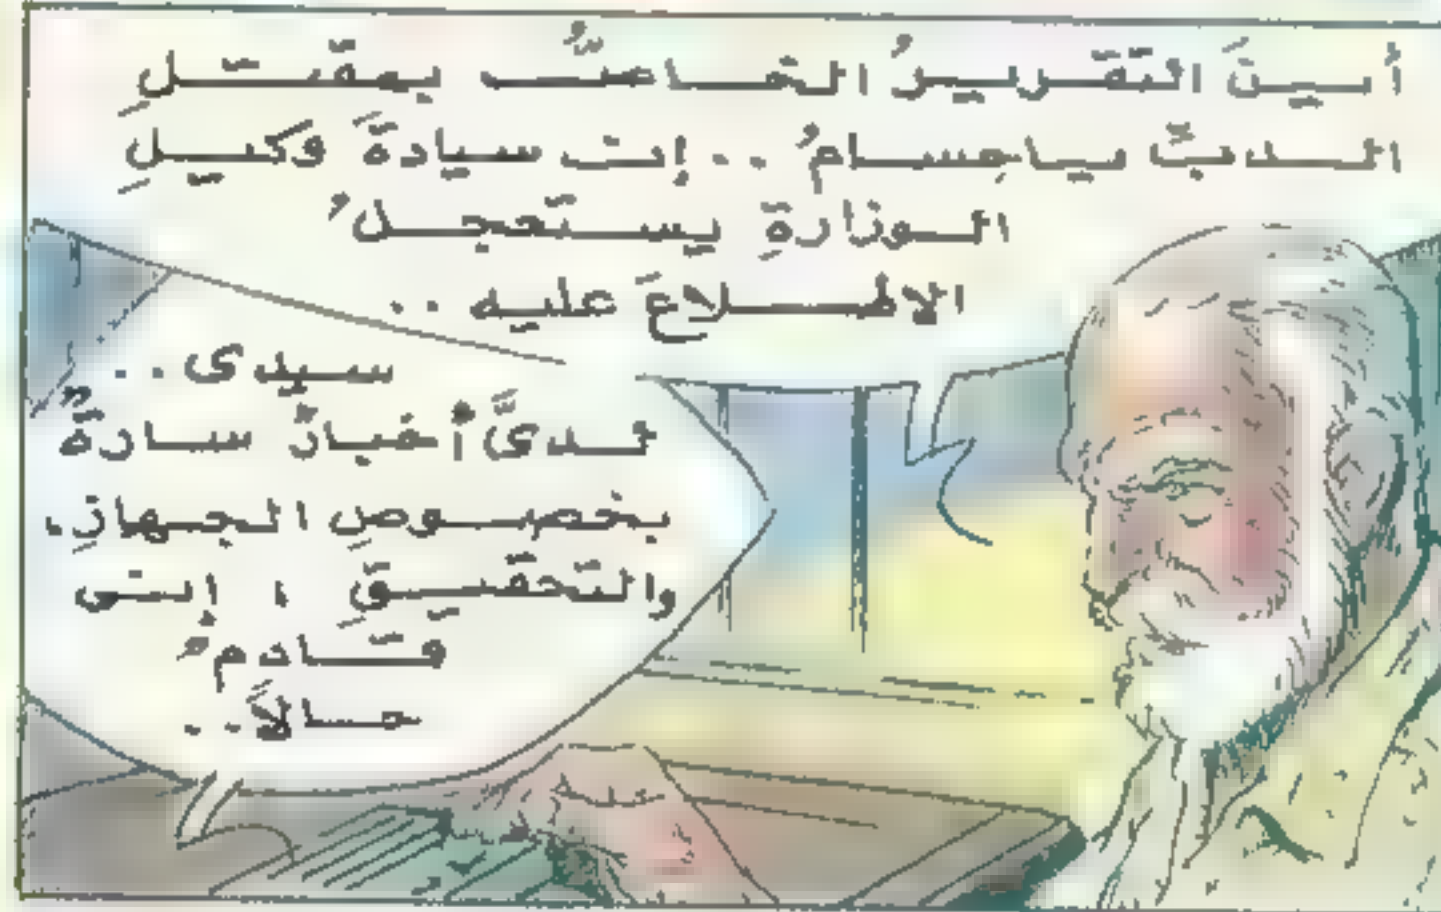 أينَ التّقريرُ الخاصُّ بمقتلِ
الدبِّ ياحسامُ .. إن سيادةَ وكيلِ
الوزارةِ يستعجلُ
الاطلاعَ عليه ..
سيدى ..
لدىَّ أخبارٌ سارةٌ
بخصوصِ الجهازِ،
والتحقيقِ ، إننى
قادمٌ
حالاً ..